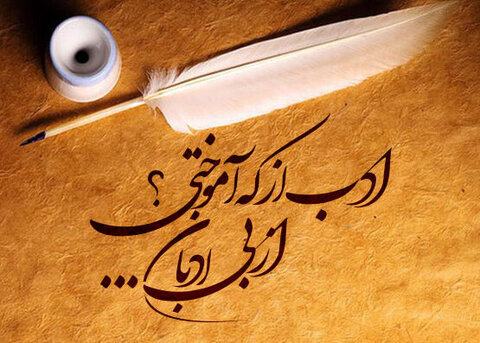 ادب از که آموختی؟
از بی ادبان...